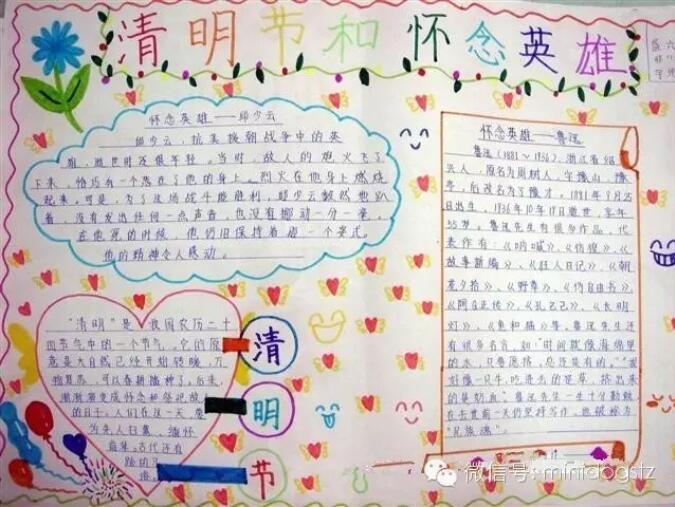 清明节和怀念英雄
怀念英雄——邱少云
邱少云,抗美援朝战争中的英
雄,牺牲时还很年轻。当时,敌人的炮火飞了
下来,恰巧有一个落在了他的身上。烈火在他身上燃烧
起来。可是,为了这场战斗能胜利,邱少云毅然地趴
着,没有发出任何一点声音,也没有挪动一分一毫。
在他死的时候,他仍旧保持着一个姿式。
他的精神令人感动。
怀念英雄——鲁迅
鲁迅(1881~1936),浙江省绍
兴人,原名为周树人,字豫山,豫
亭,后改名为了豫才。1881年9月25
日出生,1936年10月19日逝世,享年
55岁。鲁迅先生有很多作品,代
表作有:《呐喊》、《彷徨》、《
故事新编》、《狂人日记》、《朝
花夕拾》、《野草》、《伪自由书》、
《阿Q正传》、《孔乙己》、《长明
灯》、《鱼和猫》等。鲁迅先生还
有很多名言,如"时间就像海绵里
的水,只要愿挤,总还是有的。""我
好像一只牛,吃进去的是草,挤出来
的是奶血"鲁迅先生一生十分勤勉,
在去世前一天仍坚持写作,他被称为
"民族魂"。
"清明"是我国农历二十
四节气中的一个节气。它的原
意是大自然已经开始转暖,万
物复苏,可以春耕播种了。后来,
渐渐演变成怀念和祭祀故
的日子。人们在这一天
为先人扫墓,缅怀
自来。古代还有
踏的习
俗。
清
明
节
微信号: minidogstz